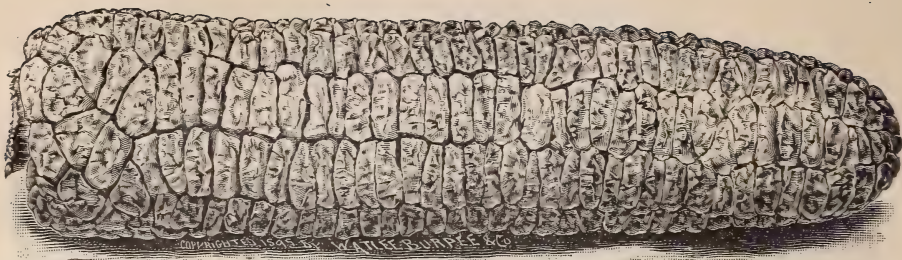 COPYRIGHTED, 1895, BY W. ATLEE BURPEE & Co